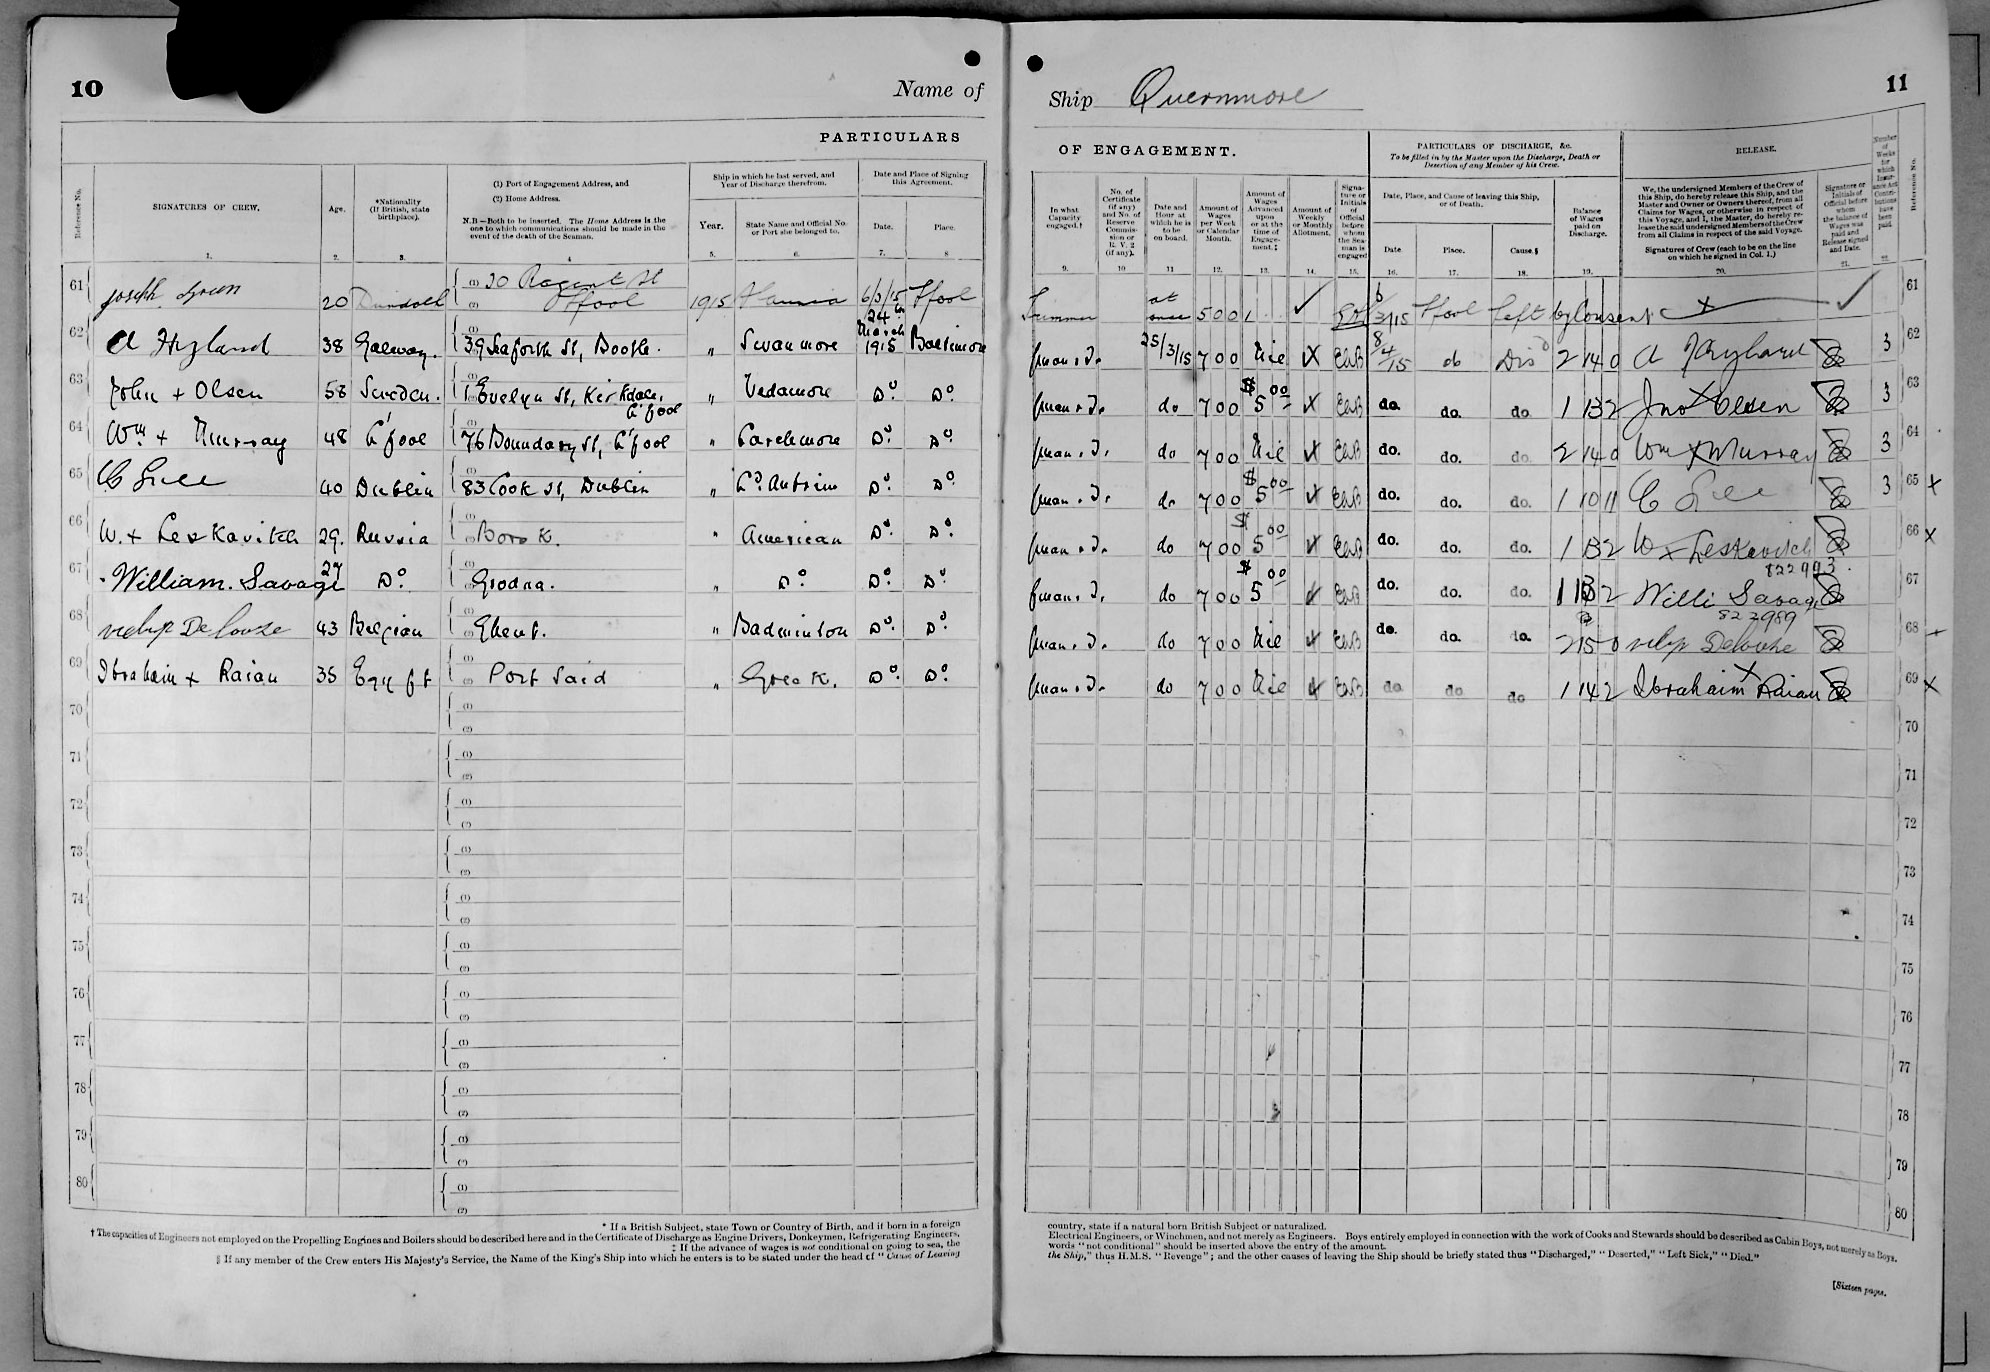 10
Name of
Ship Quernmore
11
PARTICULARS
OF ENGAGEMENT.
PARTICULARS OF DISCHARGE, &c.
To be filled in by the Master upon the Discharge, Death or Desertion of any Member of his Crew.
RELEASE.
Reference No.
SIGNATURES OF CREW.
Age.
*Nationality (If British, state birthplace).
(1) Port of Engagement Address, and
(2) Home Address.
N.B—Both to be inserted. The Home Address is the one to which communications should be made in the event of the death of the Seaman.
Ship in which he last served, and Year of Discharge therefrom.
Year.
State Name and Official No. or Port she belonged to.
Date and Place of Signing this Agreement.
Date.
Place.
In what Capacity engaged.†
No. of Certificate (if any) and No. of Reserve Commission or R.V.2 (if any).
Date and Hour at which he is to be on board.
Amount of Wages per Week or Calendar Month.
Amount of Wages Advanced upon or at the time of Engagement.‡
Amount of Weekly or Monthly Allotment.
Signature or Initials of Official before whom the Seaman is engaged
Date, Place, and Cause of leaving this Ship, or of Death.
Date.
Place.
Cause.§
Balance of Wages paid on Discharge.
We, the undersigned Members of the Crew of this Ship, do hereby release this Ship, and the Master and Owner or Owners thereof, from all Claims for Wages, or otherwise in respect of this Voyage, and I, the Master, do hereby release the said undersigned Members of the Crew from all Claims in respect of the said Voyage.
Signatures of Crew (each to be on the line on which he signed in Col. 1.)
Signature or Initials of Official before whom the balance of Wages was paid and Release signed and Date.
Number of Weeks for which Insurance Act Contributions have been paid.
Reference No.
1. 2. 3. 4 5. 6. 7. 8 9. 10 11 12. 13. 14. 15. 16. 17. 18. 19. 20. 21. 22.
61 Joseph 20 (1) 30 Regent St (2) L'pool 1915 6/3/15 L'pool Trimmer at once 5 0 0 1 6/3/15 L'pool left by consent 61
62 A Hyland 38 Galway. 39 Seaforth St, Bootle. " Swanmore 24th March 1915 Baltimore fman & T. 25/3/15 7 0 0 Nil EWB 8/4/15 do Disd 2 14 0 A Hyland 3 62
63 John + Olsen 58 Sweden. 1 Evelyn St, Kirkdale, L'pool " Vedamore Do. Do. fman & T. do 7 0 0 $5 00 EWB do. do. do. 1 13 2 Jno x Olsen 3 63
64 Wm + Murray 48 L'pool 76 Boundary St, L'pool " Parchmore Do. Do. fman & T. do 7 0 0 Nil EWB do. do. do. 2 14 0 Wm x Murray 3 64
65 C 40 Dublin 83 Cook St, Dublin " Ld. Antrim Do. Do. fman & T. do 7 0 0 $5 00 EWB do. do. do. 1 10 11 C 3 65 x
66 W. + Leskavitch 29. Russia Borok. " American Do. Do. fman & T. do 7 0 0 $5 00 EWB do. do. do. 1 13 2 W x Leskavitch 66 x
822993.
67 William. Savage 27 Do. Grodna. " Do. Do. Do. fman & T. do 7 0 0 $5 00 EWB do. do. do. 1 13 2 Willi Savage 67
822989
68 43 Belgian Ghent. " Badminton Do. Do. fman & T. do 7 0 0 Nil EWB do. do. do. 2 15 0 68
69 Ibrahaim + Raian 35 Egypt Port Said " Greek. Do. Do. fman & T. do 7 0 0 Nil EWB do. do. do 1 14 2 Ibrahaim x Raian 69 x
70 (1) (2) 70
71 (1) (2) 71
72 (1) (2) 72
73 (1) (2) 73
74 (1) (2) 74
75 (1) (2) 75
76 (1) (2) 76
77 (1) (2) 77
78 (1) (2) 78
79 (1) (2) 79
80 (1) (2) 80
* If a British Subject, state Town or Country of Birth, and if born in a foreign
† The capacities of Engineers not employed on the Propelling Engines and Boilers should be described here and in the Certificate of Discharge as Engine Drivers, Donkeymen, Refrigerating Engineers,
‡ If the advance of wages is not conditional on going to sea, the
§ If any member of the Crew enters His Majesty's Service, the Name of the King's Ship into which he enters is to be stated under the head of "Cause of Leaving
country, state if a natural born British Subject or naturalized.
Electrical Engineers, or Winchmen, and not merely as Engineers. Boys entirely employed in connection with the work of Cooks and Stewards should be described as Cabin Boys, not merely as Boys.
words "not conditional" should be inserted above the entry of the amount.
the Ship," thus H.M.S. "Revenge"; and the other causes of leaving the Ship should be briefly stated thus "Discharged," "Deserted," "Left Sick," "Died."
[Sixteen pages.